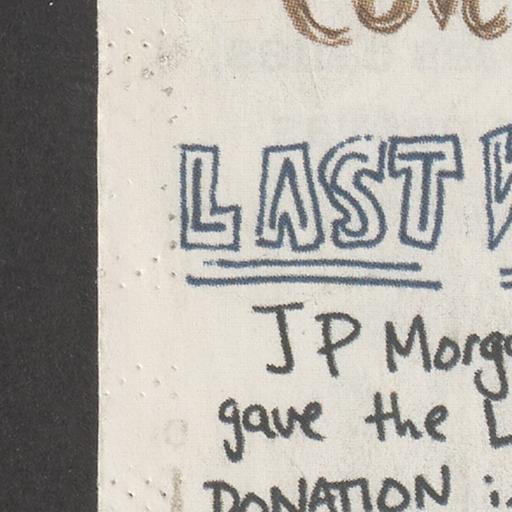 LAST
JP Morga
gave the L
DONATION